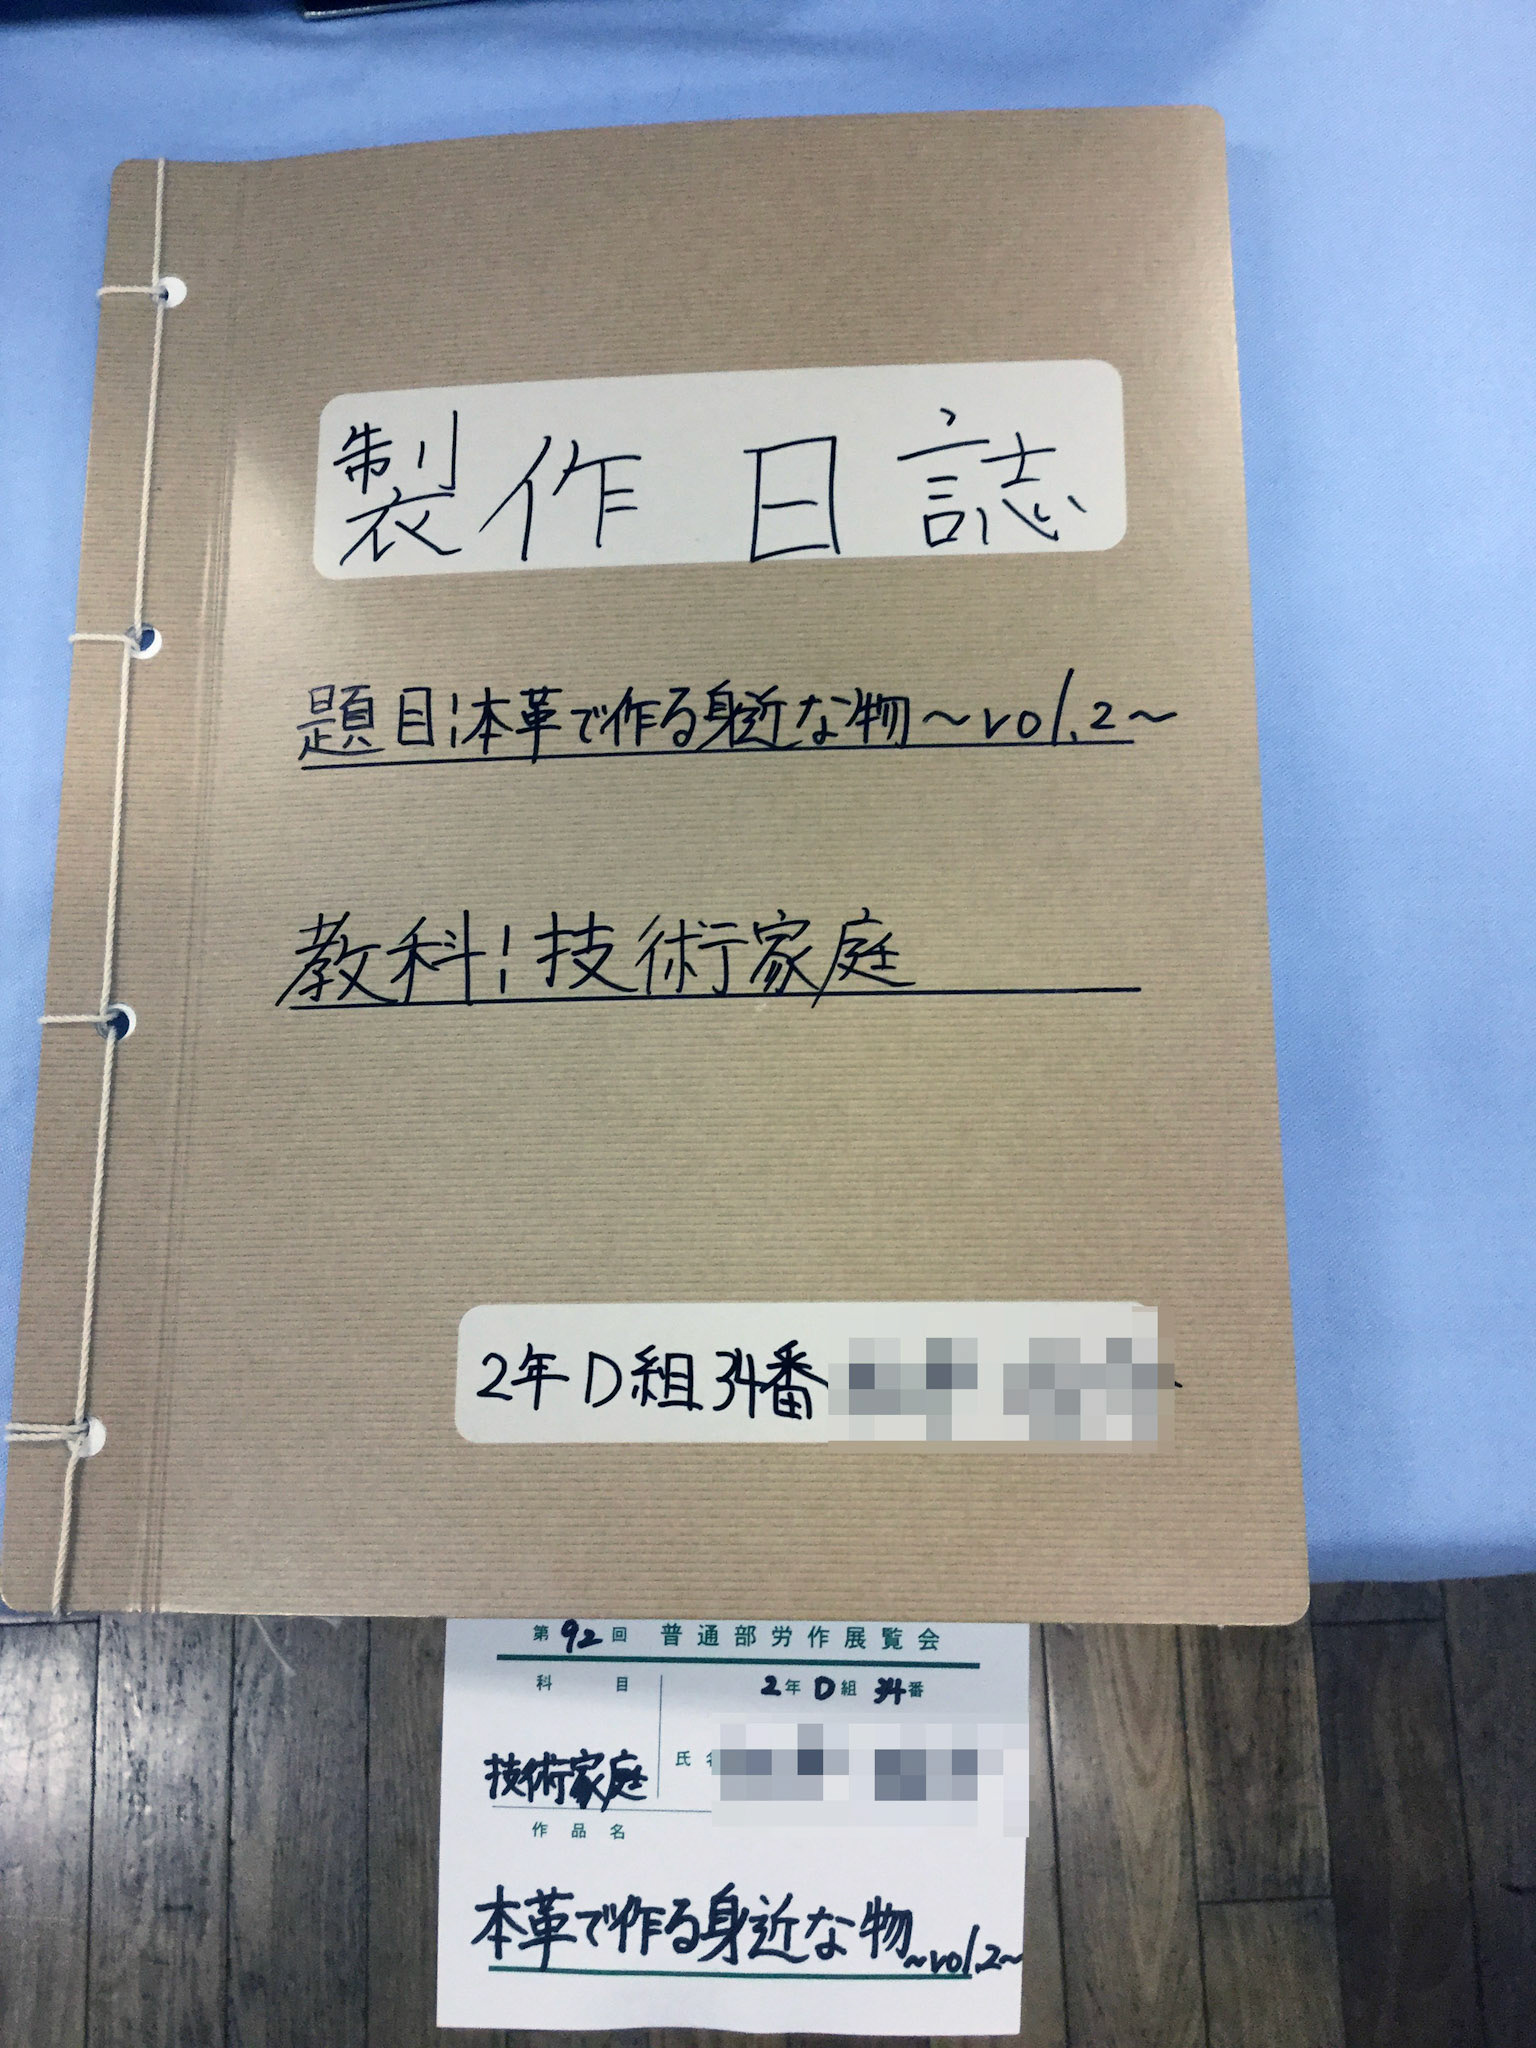 製作日誌
題目:本革で作る身近な物～vol.2～
教科:技術家庭
2年D組34番
第92回 普通部労作展覧会
科目 2年D組34番
技術家庭 氏名
作品名
本革で作る身近な物～vol.2～